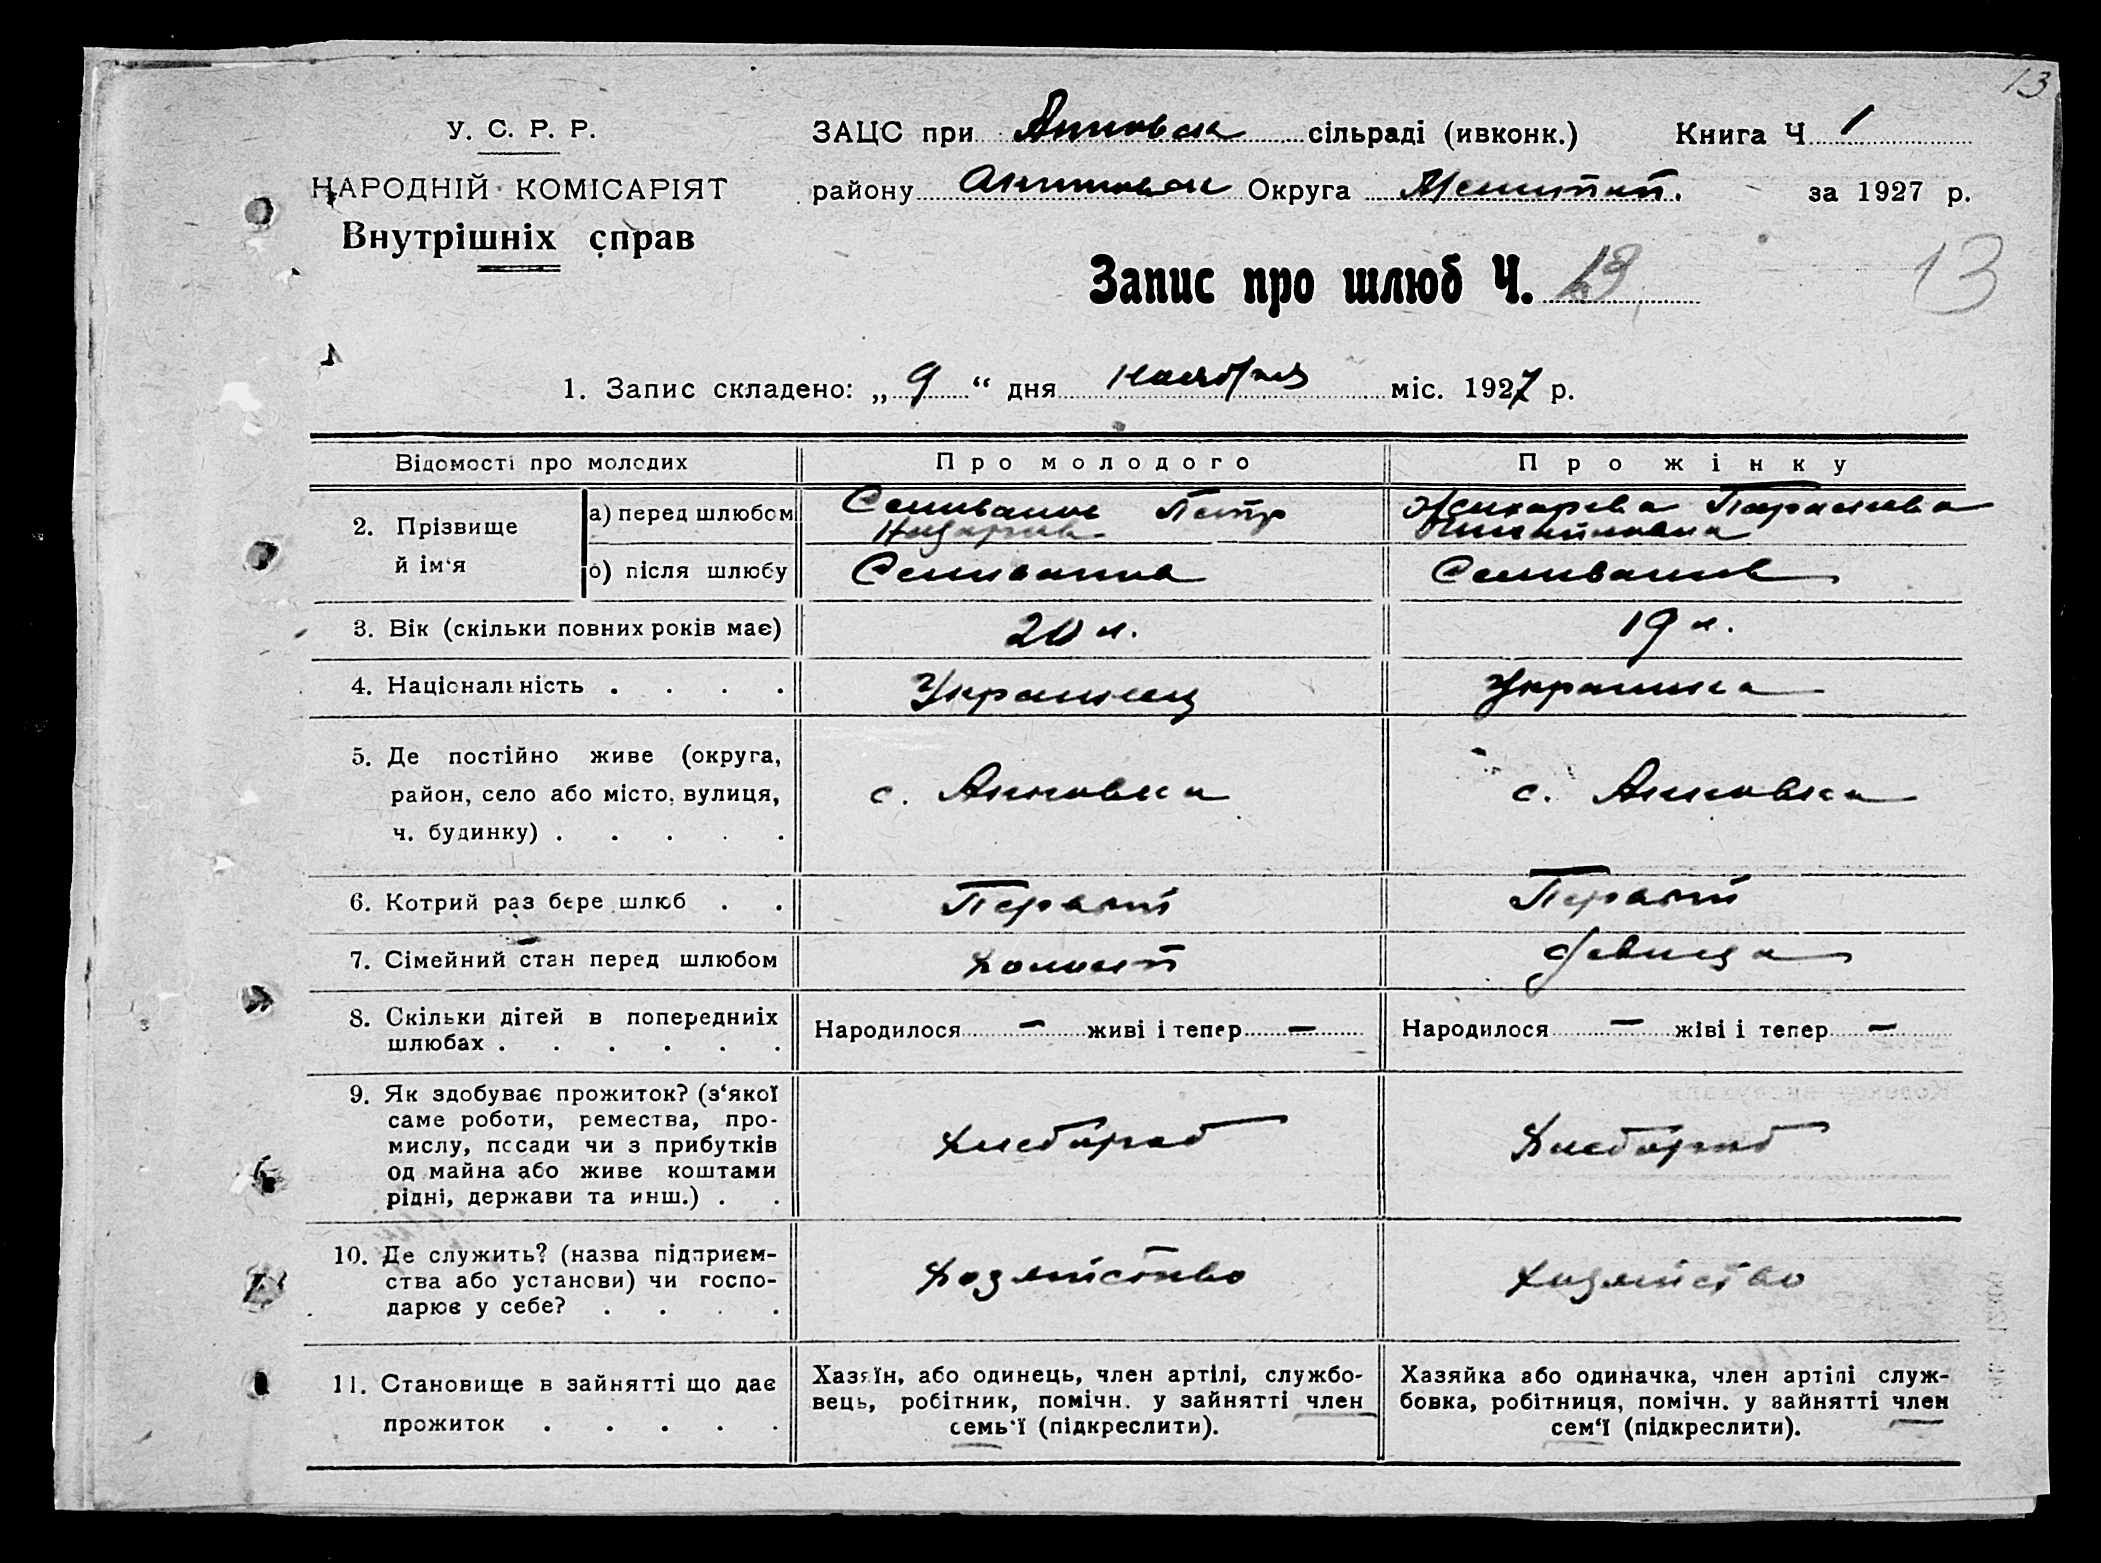 13
У. С. Р. Р.
НАРОДНІЙ КОМІСАРІЯТ
Внутрішніх справ
ЗАЦС при Анновск сільраді (ивконк.) Книга Ч 1
району Округа Мелитоп. за 1927 р.
Запис про шлюб Ч. 13
13
1. Запис складено: „ 9 “ дня ноября міс. 1927 р.
Відомості про молодих Про молодого Про жінку
2. Прізвище й ім‘я
а) перед шлюбом Селиванов Петр Назаров Жихарева Парасковa
б) після шлюбу Селиванов Селиванов
3. Вік (скільки повних років має) 20 л. 19 л.
4. Національність . . . . Украинец Украинка
5. Де постійно живе (округа,
район, село або місто, вулиця,
ч. будинку) . . . . . с. Анновка с. Анновка
6. Котрий раз бере шлюб . . Первый Первый
7. Сімейний стан перед шлюбом Холост девица
8. Скільки дітей в попередниіх
шлюбах . . . . . . Народилося — живі і тепер — Народилося — жіві і тепер —
9. Як здобуває прожиток? (з‘якої
саме роботи, ремества, про-
мислу, посади чи з прибутків
од майна або живе коштами
рідні, держави та инш.) . . Хлебороб Хлебороб
10. Де служить? (назва підприєм-
ства або установи) чи госпо-
дарює у себе? . . . . Хозяйство Хозяйство
11. Становище в зайнятті що дає
прожиток . . . . .
Хазяїн, або одинець, член артілі, службо-
вець, робітник, помічн. у зайнятті член
семь‘ї (підкреслити).
Хазяйка або одиначка, член артілі служ-
бовка, робітниця, помічн. у зайнятті член
сем‘ї (підкреслити).